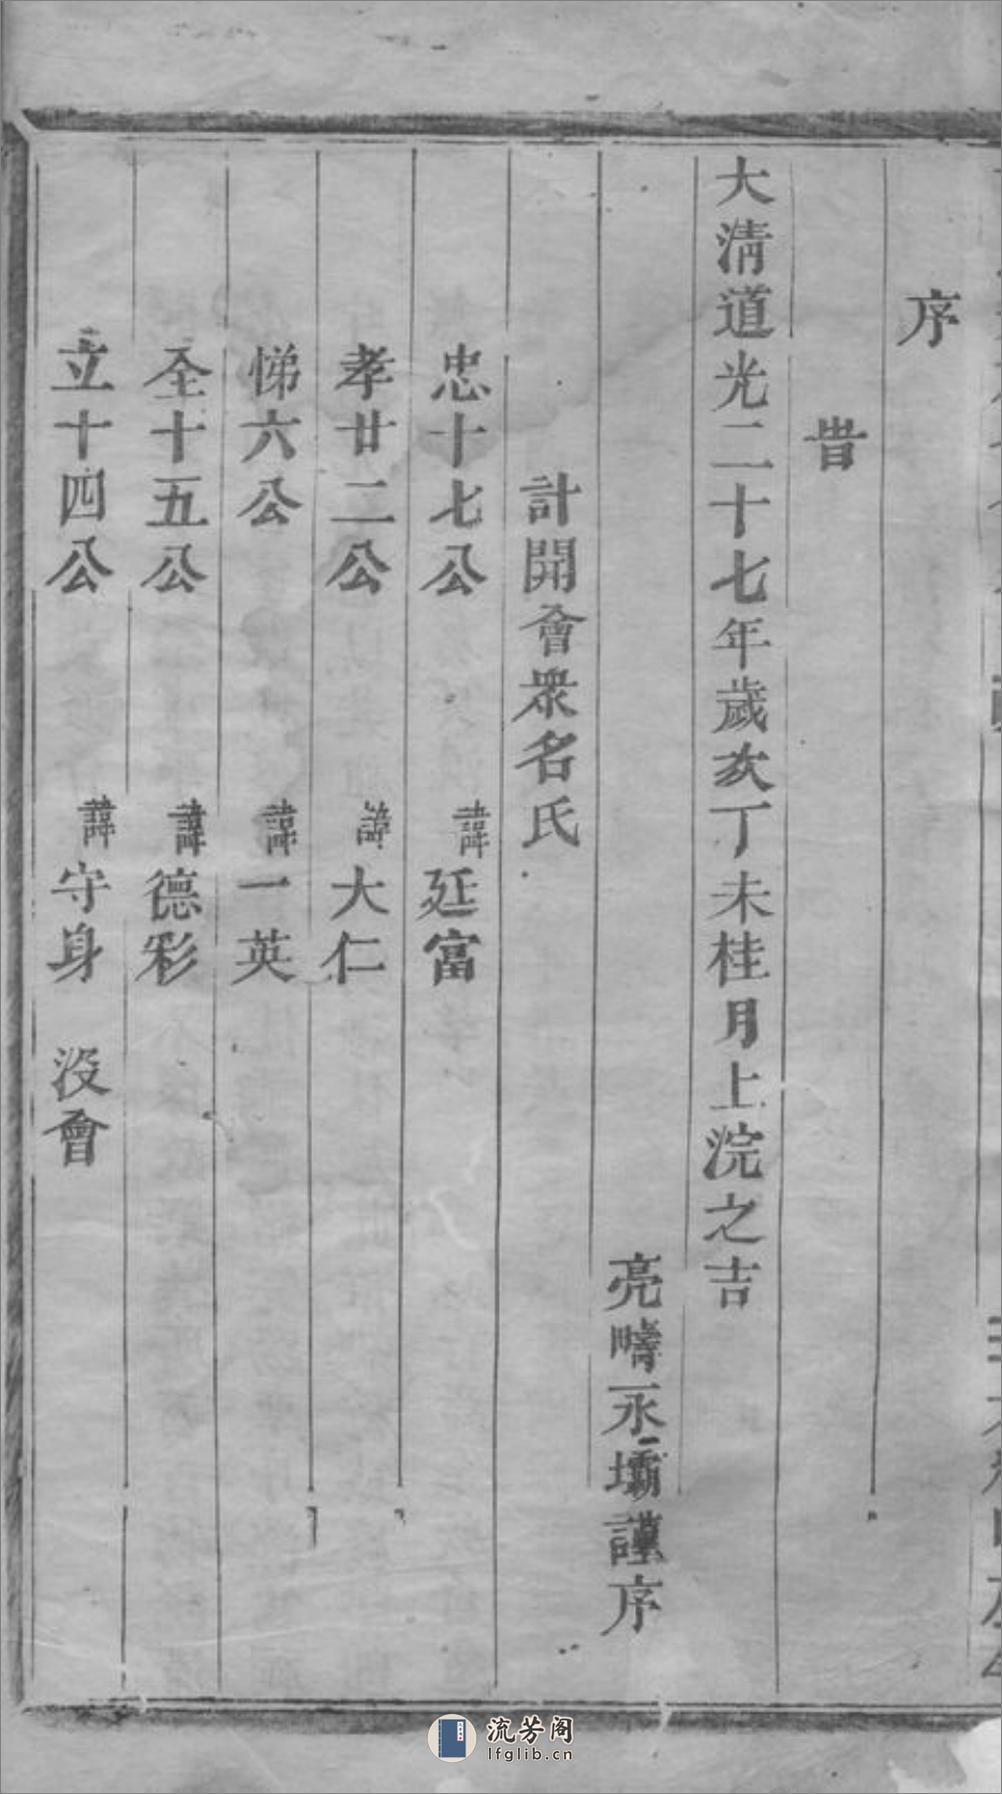 序
旹
大清道光二十七年歲次丁未桂月上浣之吉
亮疇永壩謹序
計開會衆名氏
忠十七公 諱廷富
孝廿二公 諱大仁
悌六公 諱一英
仝十五公 諱德彩
立十四公 諱守身 沒會
流芳阁
lfglib.cn